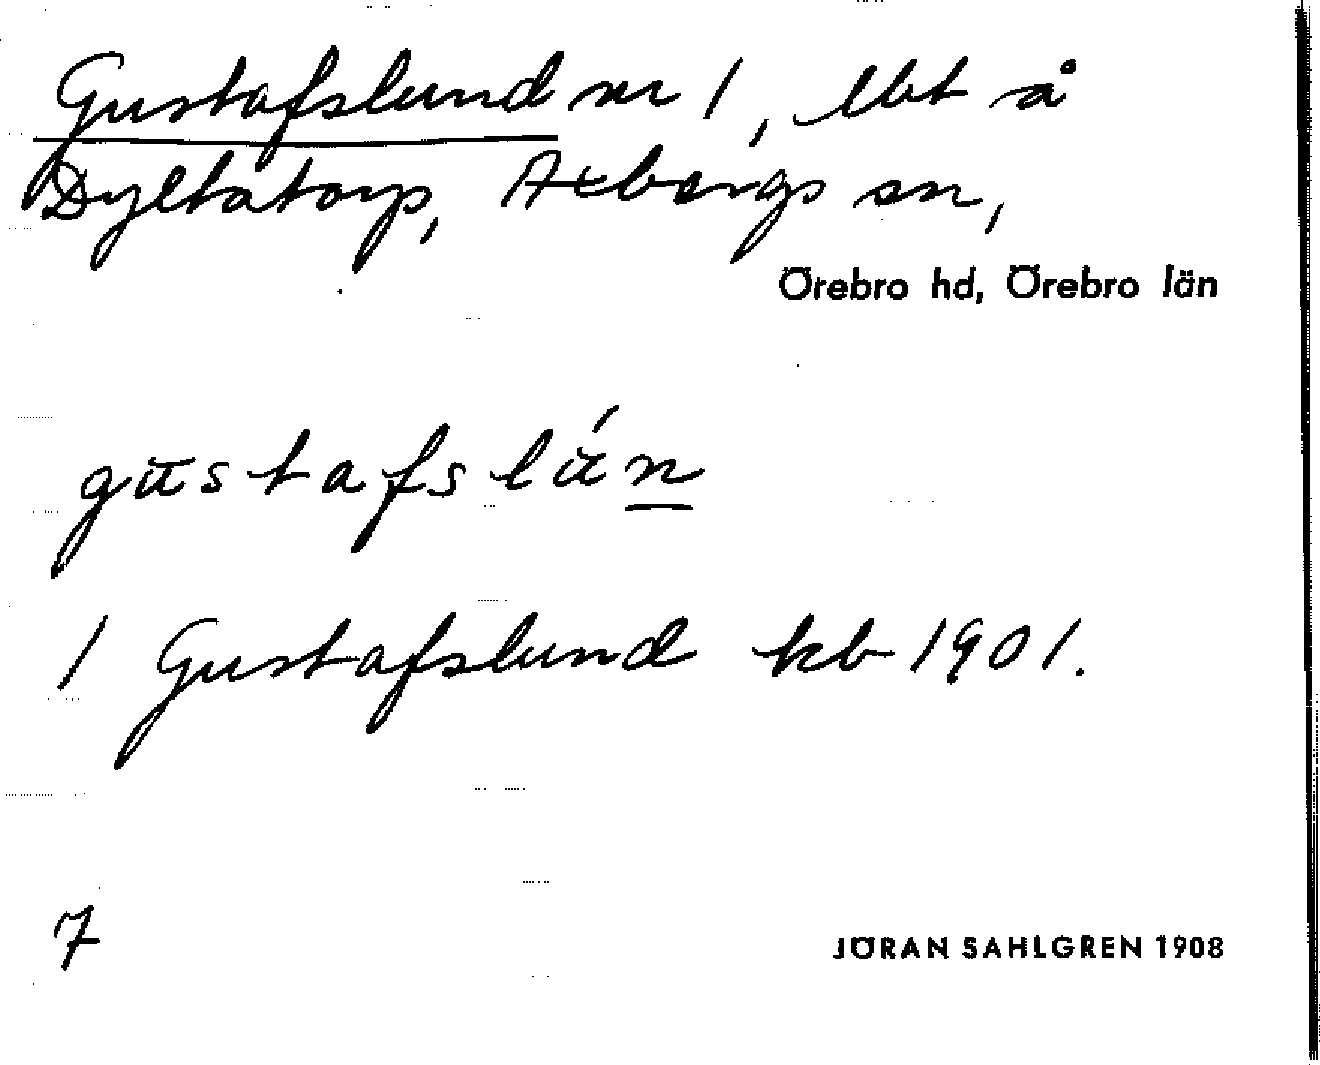 Gustafslund nr 1, lbt å
Dyltatorp, Axbergs sn,
Örebro hd, Örebro län
gustafslún
1 Gustafslund kb 1901.
7
JÖRAN SAHLGREN 1908